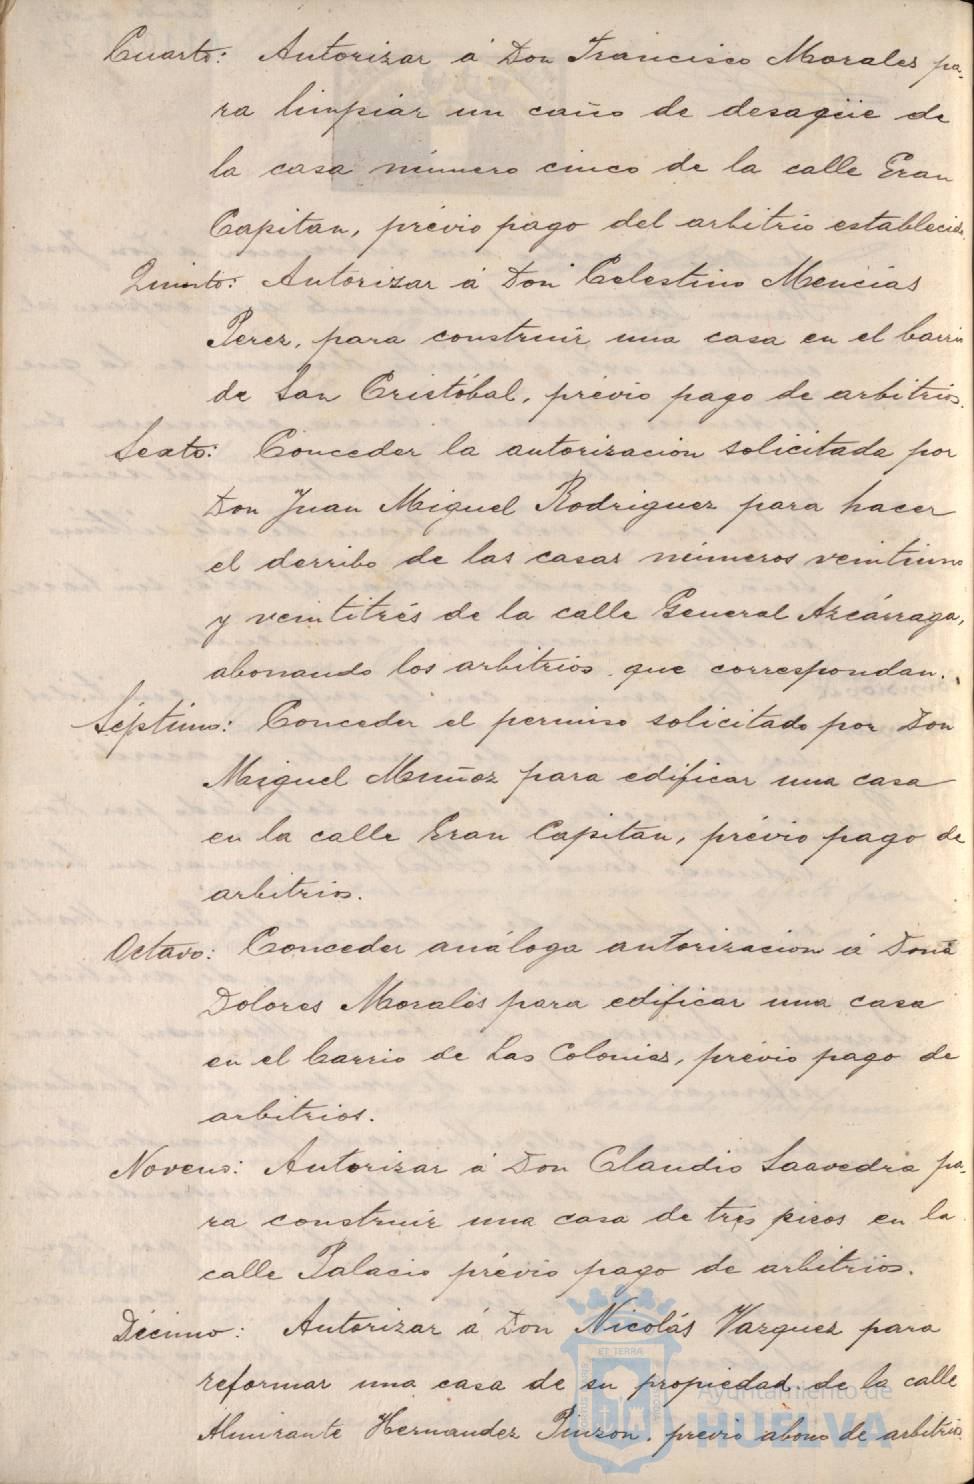 Cuarto: Autorizar á Don Francisco Morales pa-
ra limpiar un caño de desagüe de
la casa número cinco de la calle Gran
Capitan, prévio pago del arbitrio establecido.
Quinto: Autorizar á Don Celestino Mencías
Perez, para construir una casa en el barrio
de San Cristóbal, prévio pago de arbitrios.
Sexto: Conceder la autorizacion solicitada por
Don Juan Miguel Rodriguez para hacer
el derribo de las casas números veintiuno
y veintitrés de la calle General Azcárraga,
abonando los arbitrios que correspondan.
Séptimo: Conceder el permiso solicitado por Don
Miguel Muñoz para edificar una casa
en la calle Gran Capitan, prévio pago de
arbitrios.
Octavo: Conceder análoga autorizacion á Doña
Dolores Morales para edificar una casa
en el barrio de Las Colonias, prévio pago de
arbitrios.
Noveno: Autorizar á Don Claudio Saavedra pa-
ra construir una casa de tres pisos en la
calle Palacio prévio pago de arbitrios.
Décimo: Autorizar á Don Nicolás Vazquez para
reformar una casa de su propiedad de la calle
Almirante Hernandez Pinzon, previo abono de arbitrios.
ET TERRÆ
Ayuntamiento de
HUELVA